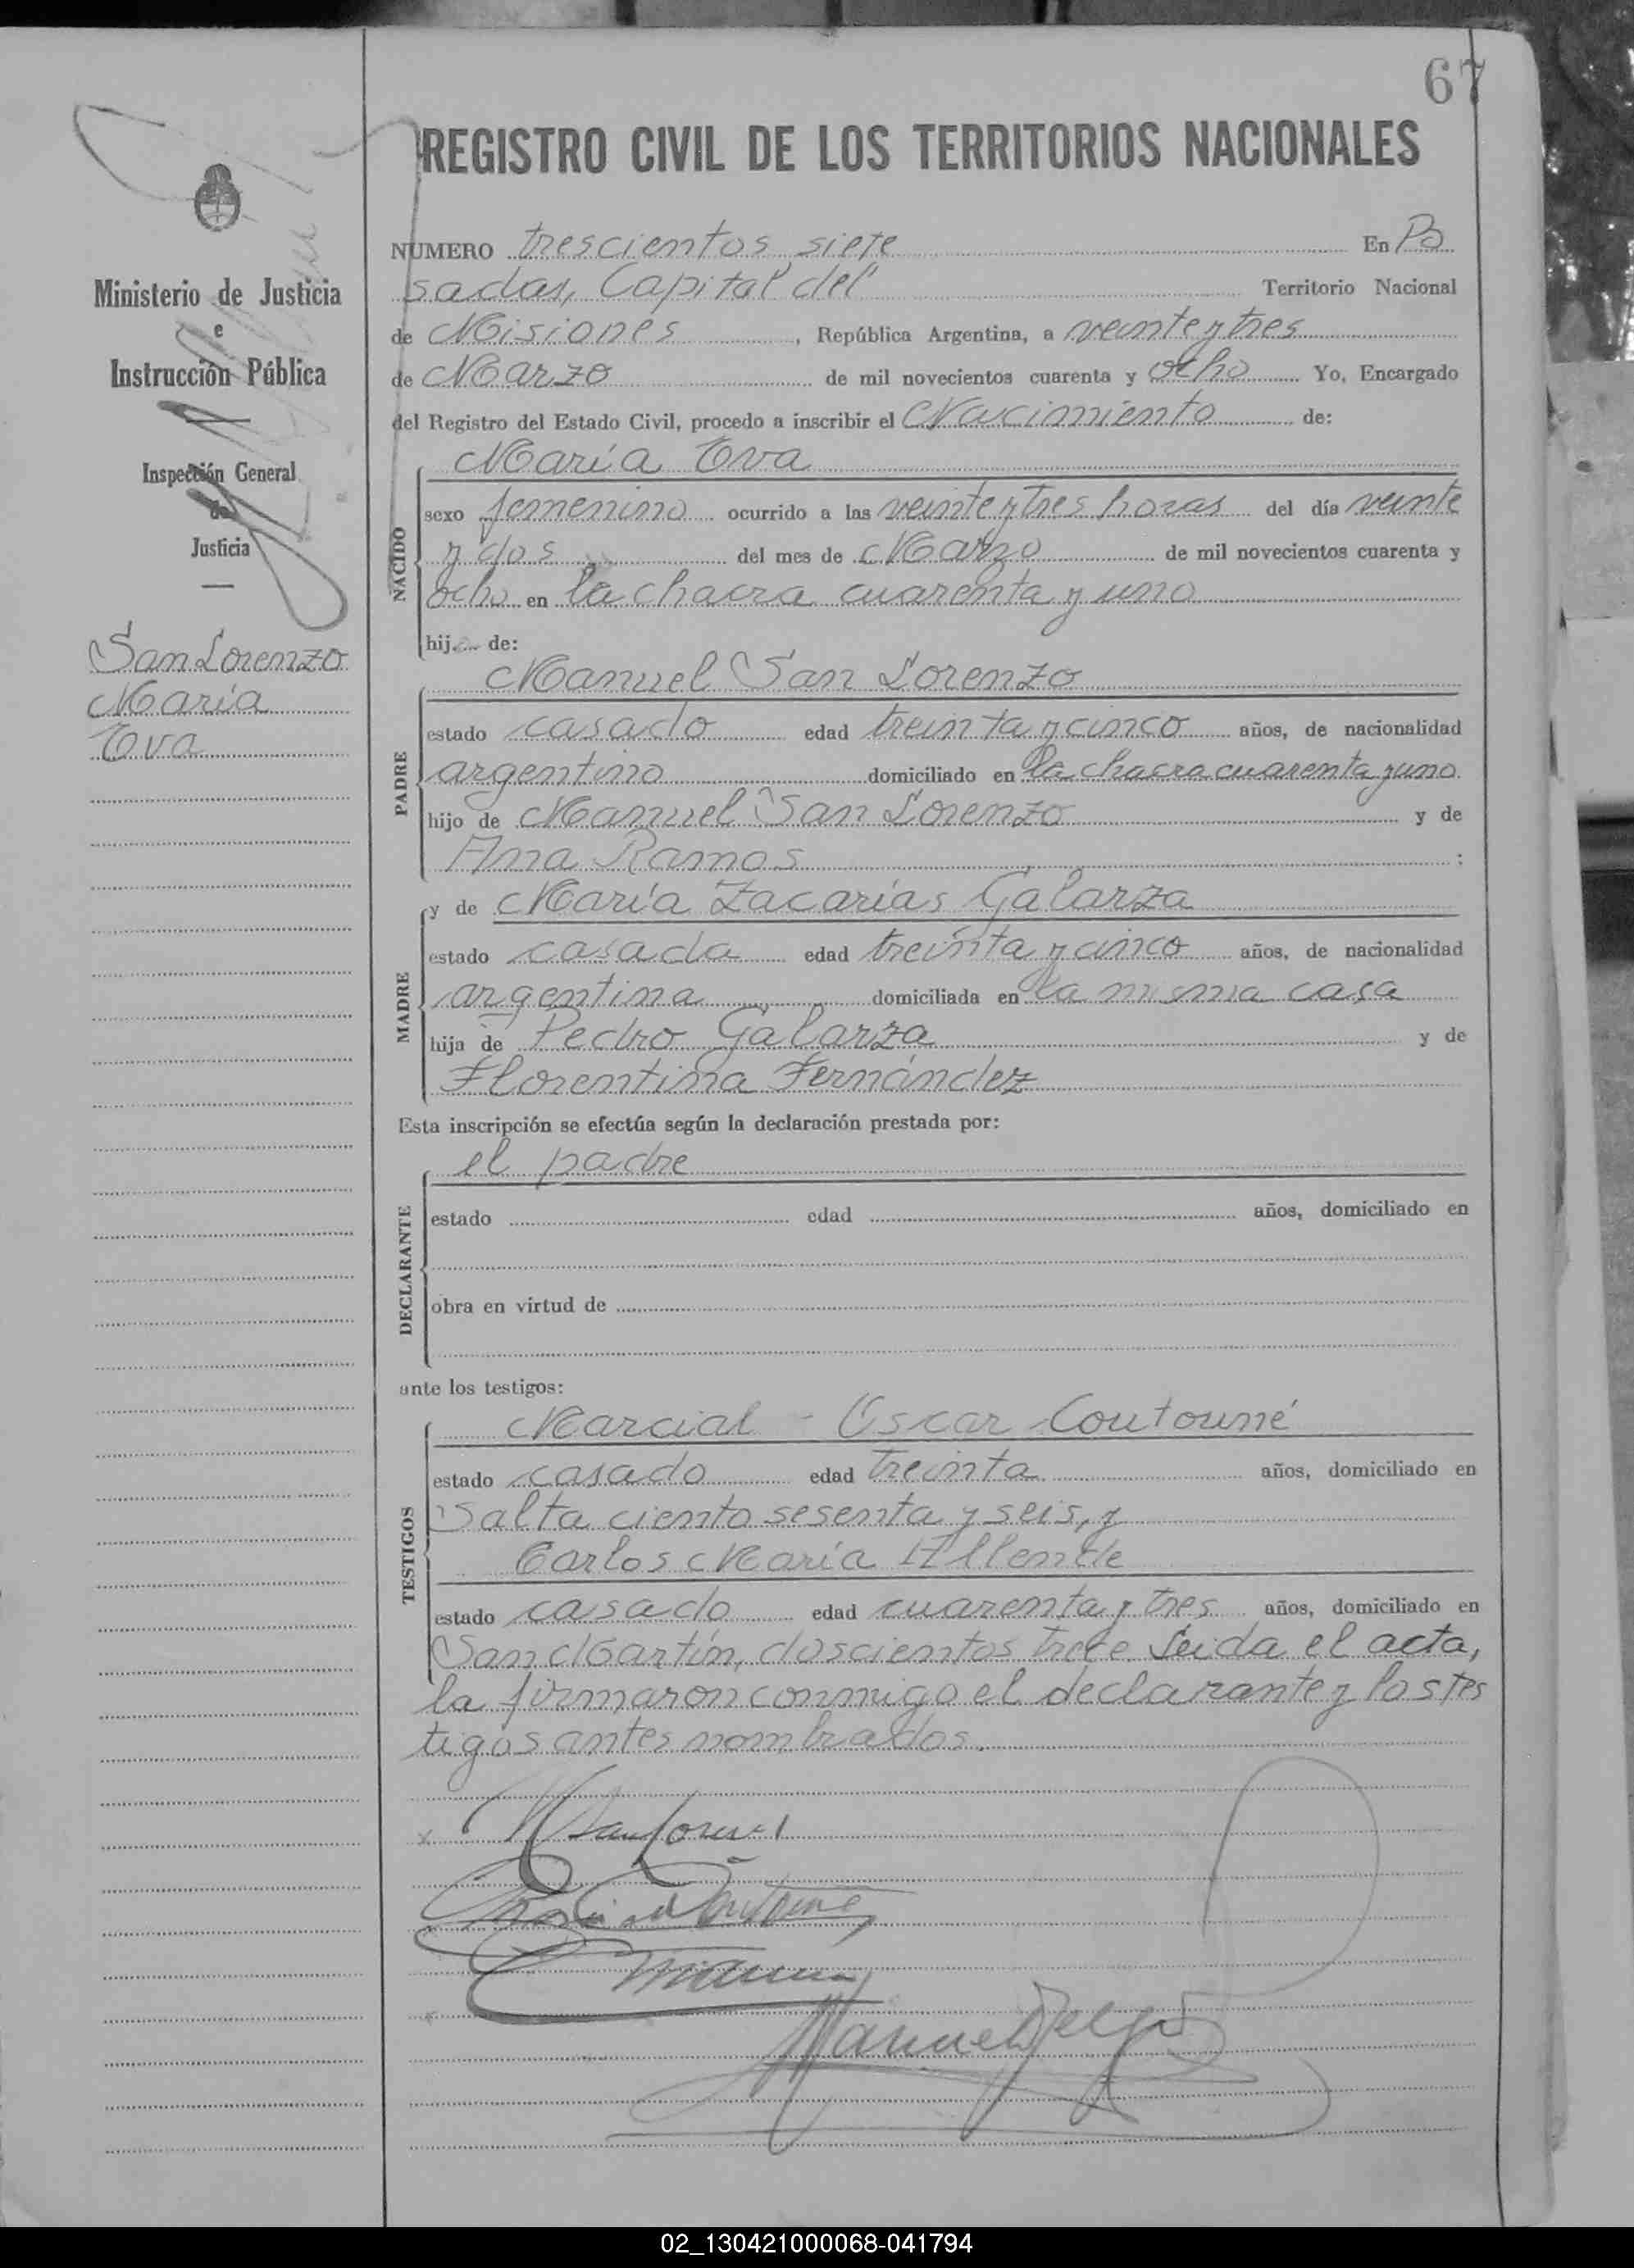 67
REGISTRO CIVIL DE LOS TERRITORIOS NACIONALES
Ministerio de Justicia
e
Instrucción Pública
Inspección General
de
Justicia
San Lorenzo
María
Eva
NUMERO trescientos siete En Po
sadas, Capital del Territorio Nacional
de Misiones, República Argentina, a veinte y tres
de Marzo de mil novecientos cuarenta y ocho Yo, Encargado
del Registro del Estado Civil, procedo a inscribir el Nacimiento de:
NACIDO
María Eva
sexo femenino ocurrido a las veinte y tres horas del día veinte
y dos del mes de Marzo de mil novecientos cuarenta y
ocho en la chacra cuarenta y uno
hija de:
PADRE
Manuel San Lorenzo
estado casado edad treinta y cinco años, de nacionalidad
argentino domiciliado en la chacra cuarenta y uno
hijo de Manuel San Lorenzo y de
Ana Ramos ;
MADRE
y de María Zacarías Galarza
estado casada edad treinta y cinco años, de nacionalidad
argentina domiciliada en la misma casa
hija de Pedro Galarza y de
Florentina Fernández
Esta inscripción se efectúa según la declaración prestada por:
DECLARANTE
el padre
estado edad años, domiciliado en
obra en virtud de
ante los testigos:
TESTIGOS
Marcial - Oscar Coutouné
estado casado edad treinta años, domiciliado en
Salta ciento sesenta y seis, y
Carlos María Allende
estado casado edad cuarenta y tres años, domiciliado en
San Martín, doscientos trece. Leida el acta,
la firmaron conmigo el declarante y los tes
tigos antes nombrados.
02_130421000068-041794